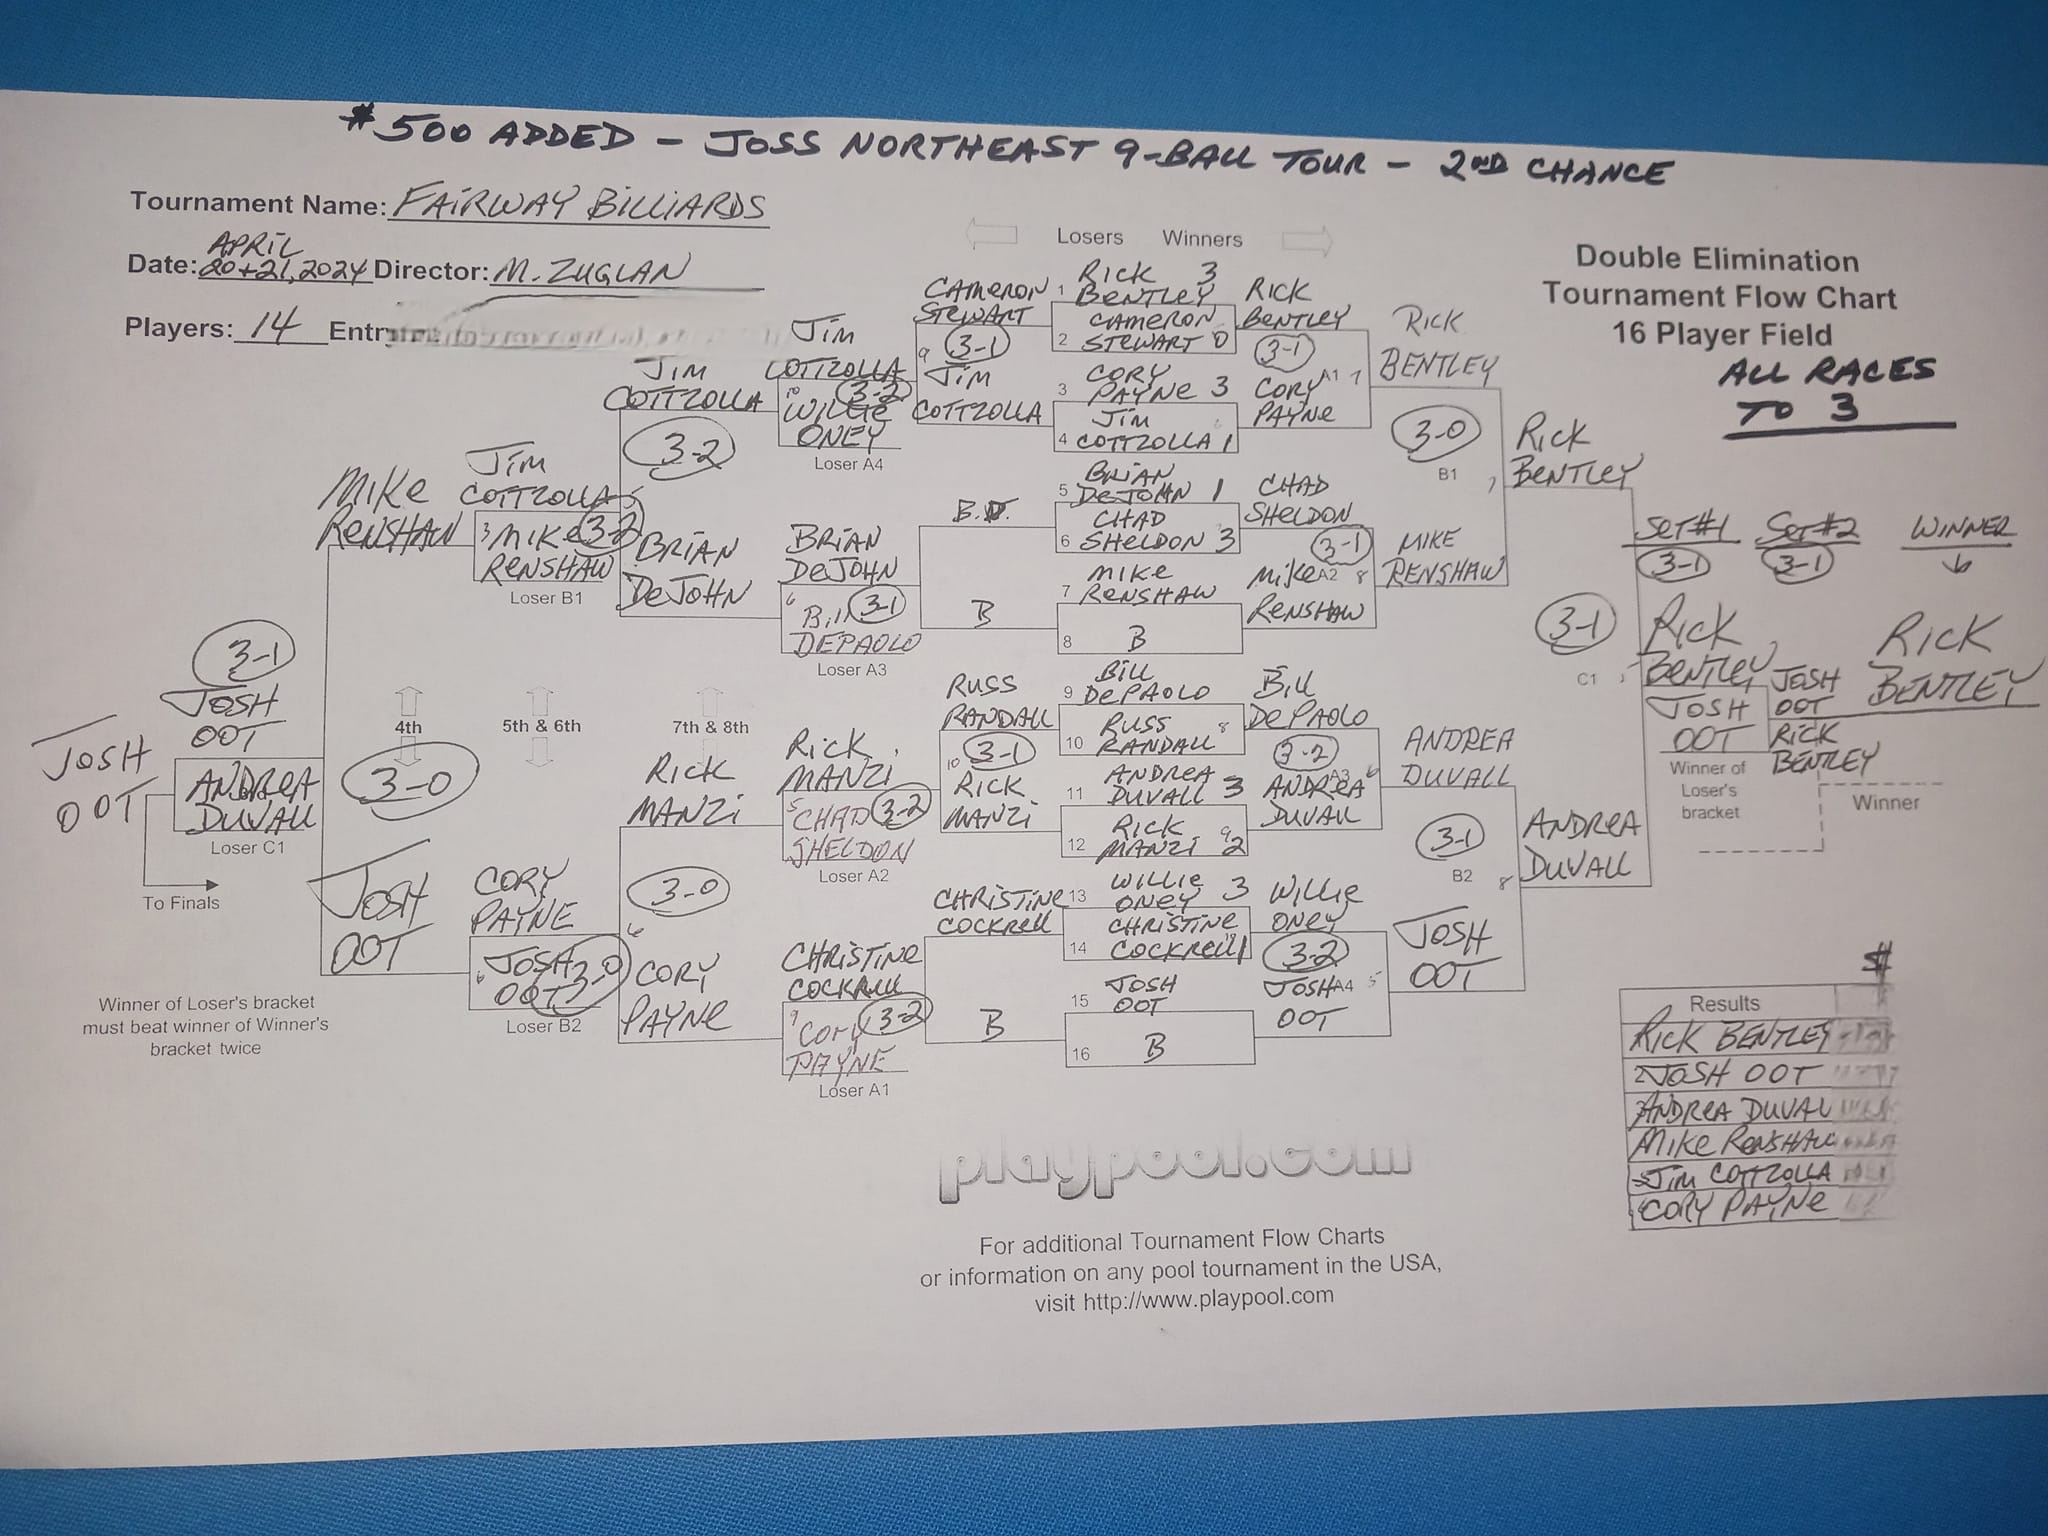 $500 ADDED - JOSS NORTHEAST 9-BALL TOUR - 2ND CHANCE
Tournament Name: FAIRWAY BILLIARDS
APRIL
Date: 20+21, 2024 Director: M. ZUGLAN
Players: 14 Entry
Losers Winners
Double Elimination
Tournament Flow Chart
16 Player Field
ALL RACES
TO 3
1 RICK 3
BENTLEY
2 CAMERON
STEWART 0
3 CORY
PAYNE 3
4 JIM
COTTZOLLA 1
5 BRIAN
DEJOHN 1
6 CHAD
SHELDON 3
7 MIKE
RENSHAW
8 B
9 BILL
DEPAOLO
10 RUSS
RANDALL
11 ANDREA
DUVALL 3
12 RICK
MANZI 2
13 WILLIE 3
ONEY
14 CHRISTINE
COCKRELL 1
15 JOSH
OOT
16 B
RICK
BENTLEY
3-1
A1
CORY
PAYNE
CHAD
SHELDON
3-1
A2
MIKE
RENSHAW
BILL
DEPAOLO
3-2
A3
ANDREA
DUVALL
WILLIE
ONEY
3-2
A4
JOSH
OOT
RICK
BENTLEY
3-0
B1
MIKE
RENSHAW
ANDREA
DUVALL
3-1
B2
JOSH
OOT
RICK
BENTLEY
3-1
C1
ANDREA
DUVALL
SET #1 SET #2 WINNER
3-1 3-1
RICK
BENTLEY
JOSH
OOT
Winner of
Loser's
bracket
JOSH
OOT
RICK
BENTLEY
RICK
BENTLEY
Winner
CAMERON
STEWART
9 3-1
JIM
COTTZOLLA
B.D.
B
RUSS
RANDALL
10 3-1
RICK
MANZI
CHRISTINE
COCKRELL
B
JIM
COTTZOLLA
10 3-2
WILLIE
ONEY
Loser A4
BRIAN
DEJOHN
6 BILL 3-1
DEPAOLO
Loser A3
RICK
MANZI
5 CHAD 3-2
SHELDON
Loser A2
CHRISTINE
COCKRELL
9 CORY 3-2
PAYNE
Loser A1
JIM
COTTZOLLA
3-2
BRIAN
DEJOHN
7th & 8th
RICK
MANZI
3-0
CORY
PAYNE
JIM
COTTZOLLA
MIKE 3-2
RENSHAW
Loser B1
5th & 6th
CORY
PAYNE
JOSH 3-0
OOT
Loser B2
MIKE
RENSHAW
4th
3-0
JOSH
OOT
3-1
JOSH
OOT
ANDREA
DUVALL
Loser C1
JOSH
OOT
To Finals
Winner of Loser's bracket
must beat winner of Winner's
bracket twice
$
Results
RICK BENTLEY
2 JOSH OOT
3 ANDREA DUVALL
MIKE RENSHAW
5 JIM COTTZOLLA
6 CORY PAYNE
playpool.com
For additional Tournament Flow Charts
or information on any pool tournament in the USA,
visit http://www.playpool.com